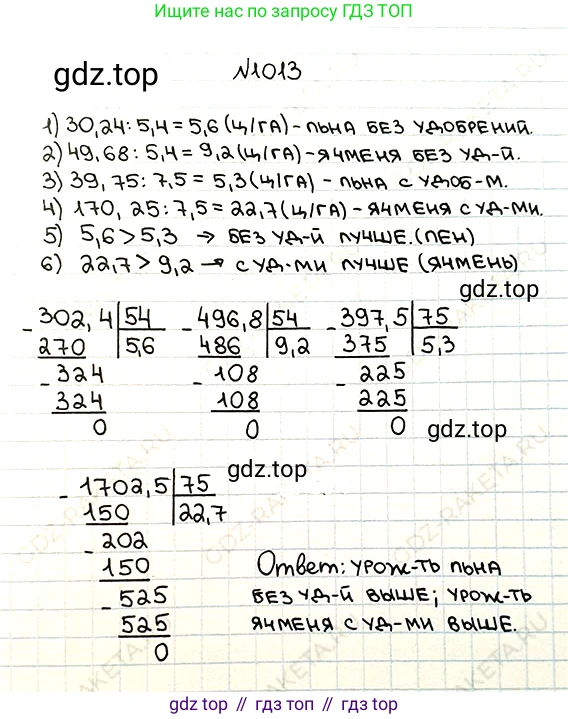 Этот номер по запросу ГДЗ ТОП
gdz.top
№1013
1) 30,24 : 5,4 = 5,6 (ц/га) - льна без удобрений.
2) 49,68 : 5,4 = 9,2 (ц/га) - ячменя без уд-й.
3) 39,75 : 7,5 = 5,3 (ц/га) - льна с удоб-м.
4) 170,25 : 7,5 = 22,7 (ц/га) - ячменя с уд-ми.
5) 5,6 > 5,3 → без уд-й лучше. (лен)
6) 22,7 > 9,2 → с уд-ми лучше (ячмень)
gdz.top
- 302,4 54 - 496,8 54 - 397,5 75
270 5,6 486 9,2 375 5,3
- 324 - 108 - 225
324 108 225
0 0 0
gdz.top
gdz.top
- 1702,5 75
150 22,7
- 202
150
- 525
525
0
Ответ: урож-ть льна
без уд-й выше; урож-ть
ячменя с уд-ми выше.
gdz.top // гдз.топ // гдз топ